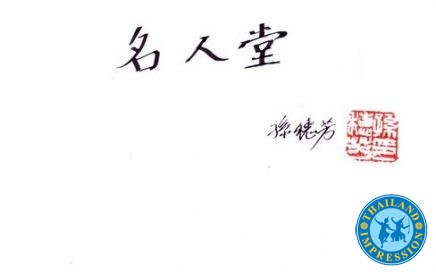 名人堂
孫穗芳
THAILAND
IMPRESSION